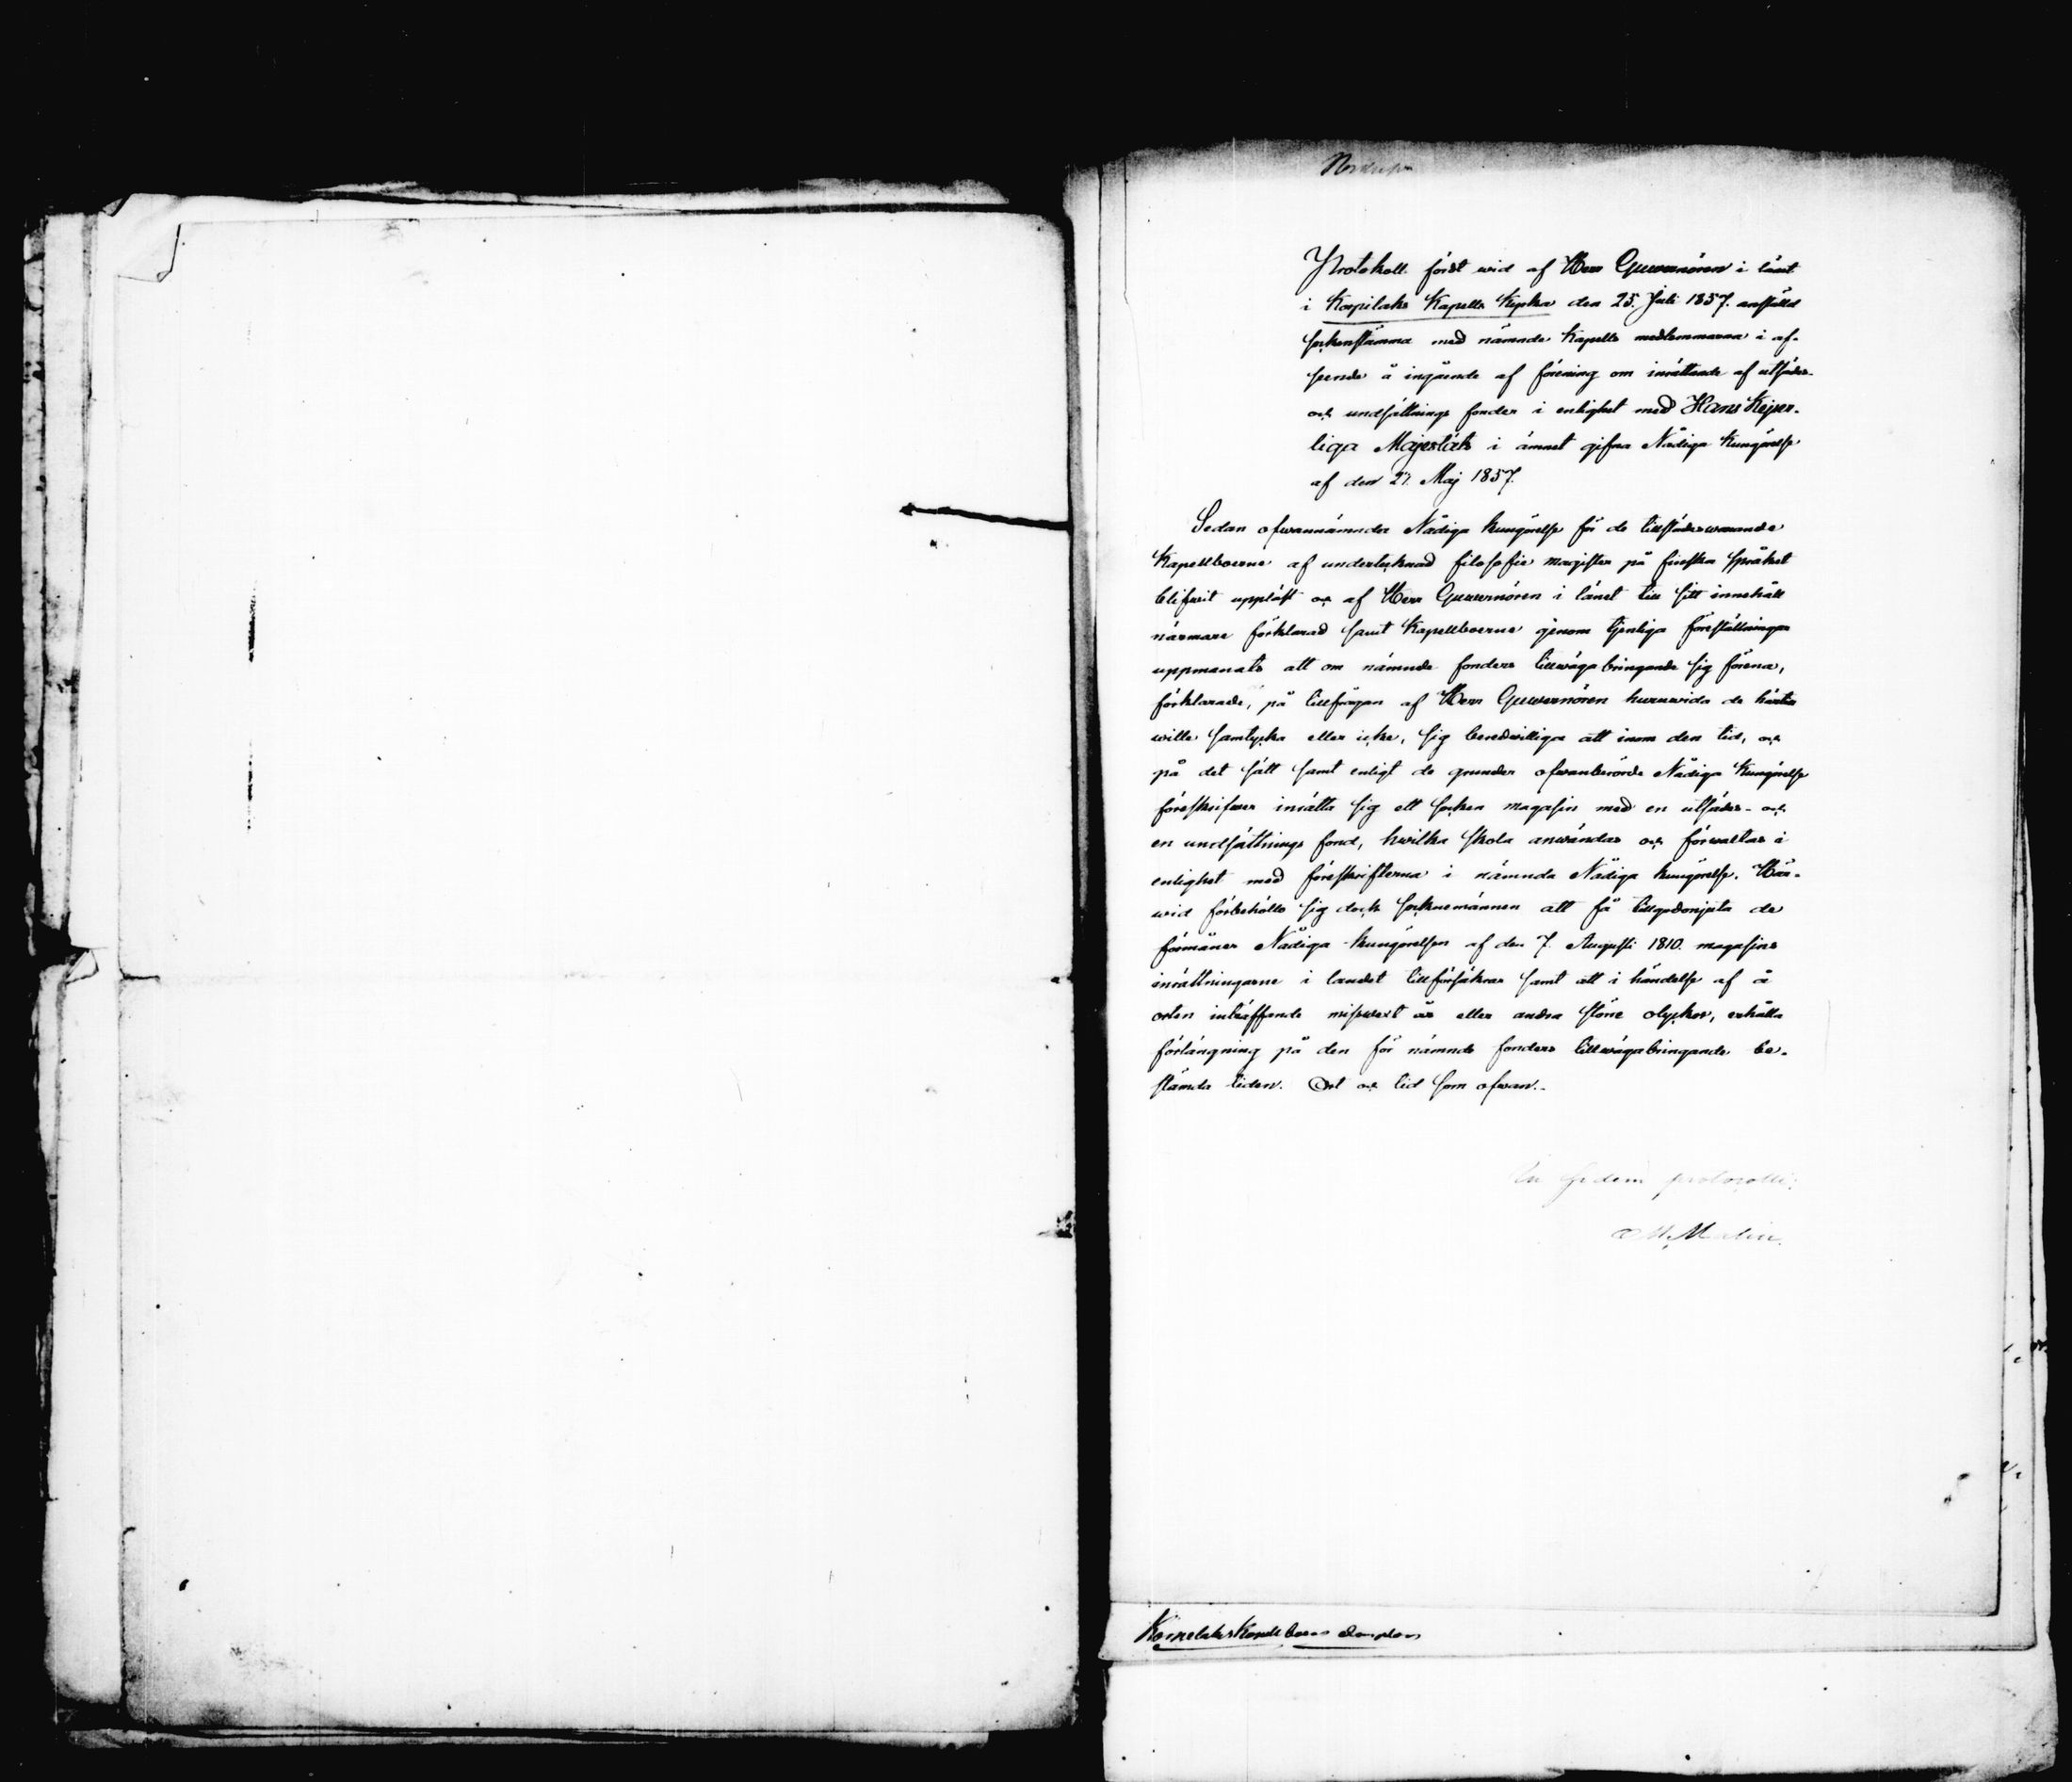 Protokoll fördt wid af Herr Guvernören i länet
i Korpilaks Kapells Kyrka den 25. Juli 1857. anställd
sockenstämma med nämnde Kapells medlemmarna i af-
seende å ingående af förening om inrättande af utsädes-
och undsättnings fonder i enlighet med Hans Kejser-
liga Majestäts i ämnet gifna Nådiga Kungörelse
af den 27. Maj 1857.
Sedan ofwannämnda Nådiga Kungörelse för de tillstädeswarande
Kapellboerne af undertecknad filosofie magister på finska språket
blifwit uppläst och af Herr Guvernören i länet till sitt innehåll
närmare förklarad samt Kapellboerne genom tjenliga föreställningar
uppmanats att om nämnde fonders tillwägabringande sig förena,
förklarade, på tillfrågan af Herr Guvernören huruwida de härtill
wille samtycka eller icke, sig beredwilliga att inom den tid, och
på det sätt samt enligt de grunder ofwanberörde Nådiga Kungörelse
föreskrifwer inrätta sig ett socken magasin med en utsädes- och
en undsättnings fond, hwilka skola användas och förwaltas i
enlighet med föreskrifterna i nämnda Nådiga Kungörelse. Här-
wid förbehöllo sig dock socknemännen att få tillgodonjuta de
förmåner Nådiga Kungörelsen af den 7. Augusti 1810. magasins
inrättningarne i landet tillförsäkrar samt att i händelse af å
orten inträffande missvext år eller andra större olyckor, erhålla
förlängning på den för nämnde fonders tillwägabringande be-
stämda tiden. Ort och tid som ofwan.-
In fidem protocolli:
Malin.
Kapellboers